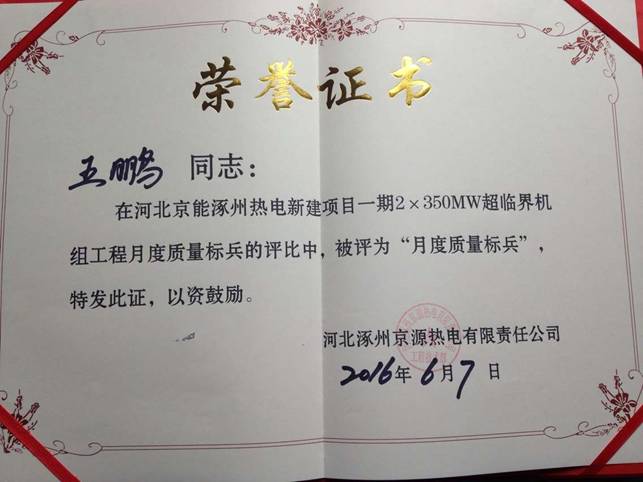 荣誉证书
王鹏 同志：
在河北京能涿州热电新建项目一期2×350MW超临界机
组工程月度质量标兵的评比中，被评为“月度质量标兵”，
特发此证，以资鼓励。
河北涿州京源热电有限责任公司
2016年6月7日